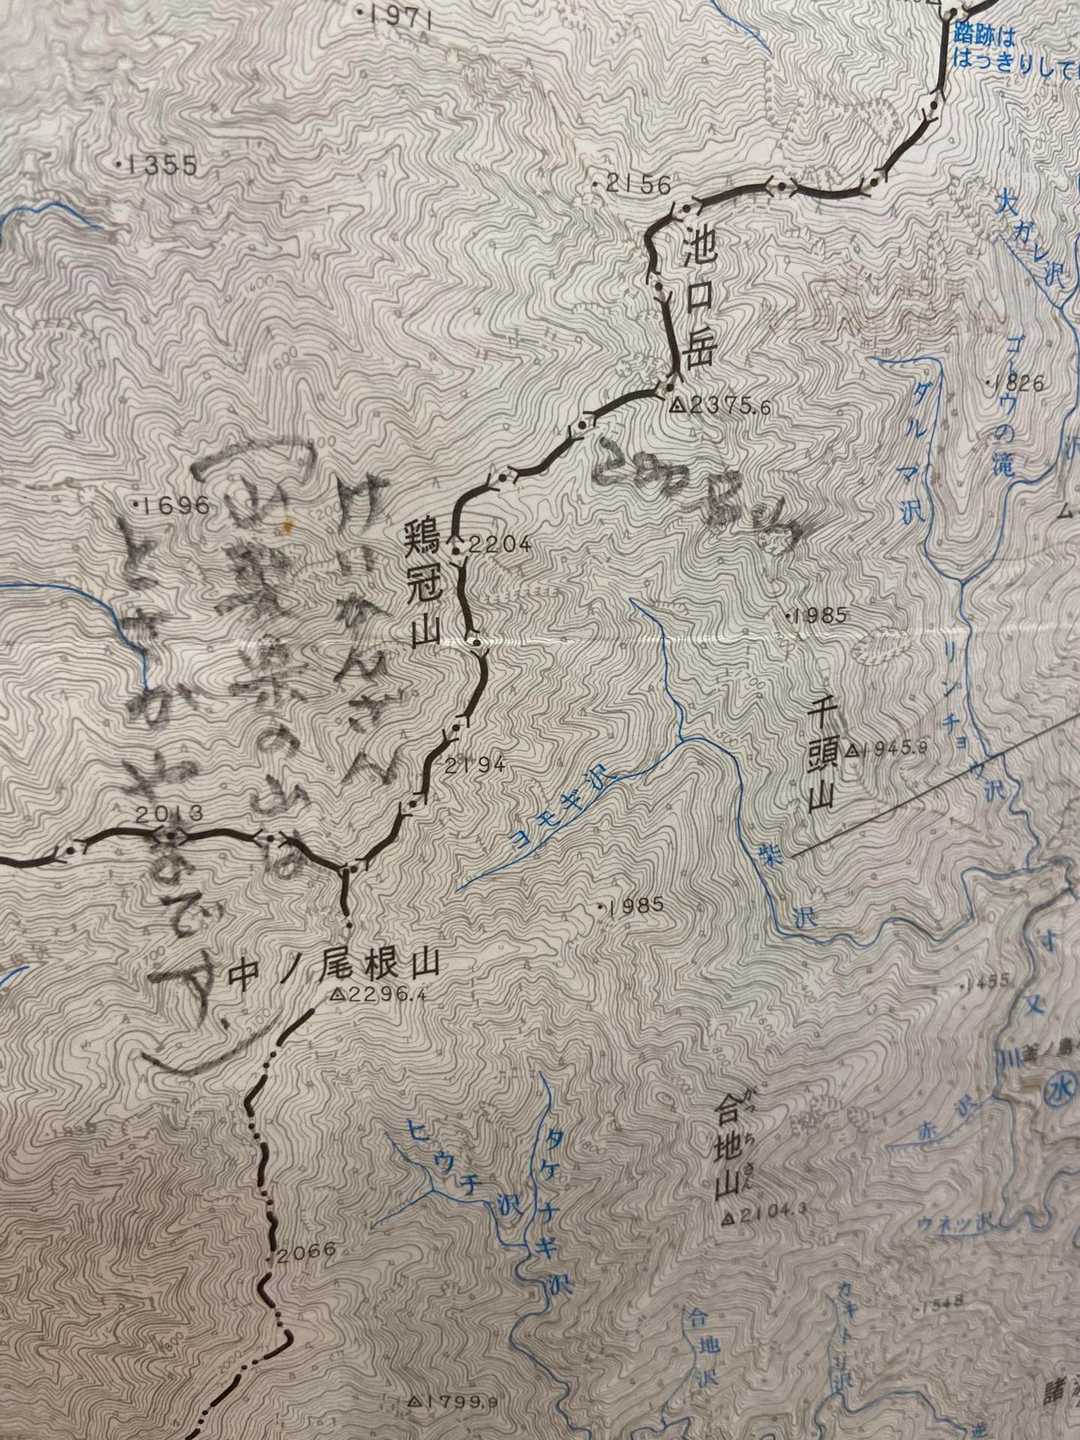 1971
踏跡は
はっきりして
1355
2156
池口岳
大ガレ沢
2375.6
ゴーウの滝
1826
ダルマ沢
沢
200名山
1696
鶏冠山
2204
けいかんざん
山梨県の山は
とさかやまです
1985
リンチョウ沢
千頭山
1945.9
2194
ヨモギ沢
2013
柴沢
1985
中ノ尾根山
2296.4
1455
寸又川
釜ノ島
水
赤沢
合地山
がっちさん
2104.3
ヒウチ沢
タケナギ沢
ウネッ沢
2066
合地沢
カモトリ沢
1548
1799.9
諸
逆